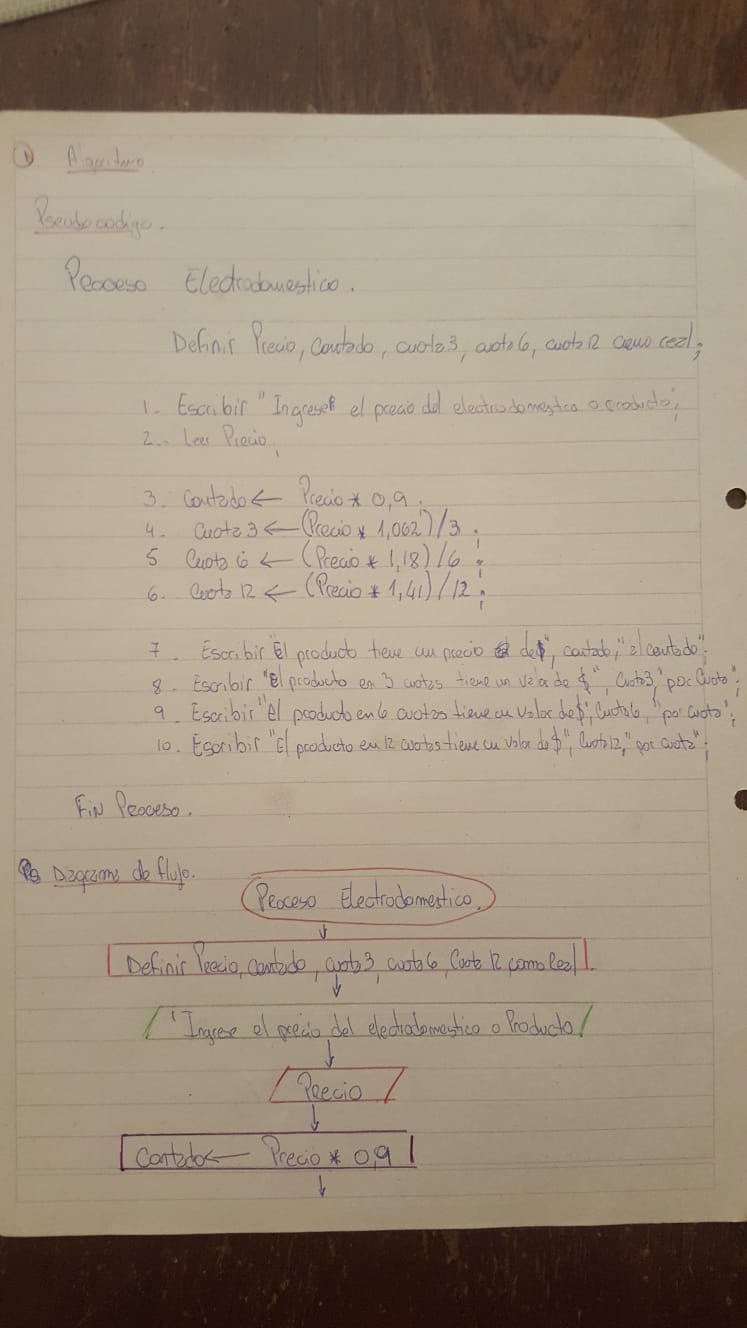 1 Algoritmo
Pseudocodigo.
Proceso Electrodomestico.
Definir Precio, Contado, cuota3, cuota6, cuota12 como real;
1. Escribir "Ingrese el precio del electrodomestico o producto";
2.- Leer Precio;
3. Contado ← Precio * 0,9.
4. Cuota 3 ← (Precio * 1,062)/3 ;
5 Cuota 6 ← (Precio * 1,18)/6 ;
6. Cuota 12 ← (Precio * 1,41)/12 ;
7 - Escribir "El producto tiene un precio de $", contado, "el contado";
8 - Escribir "El producto en 3 cuotas tiene un valor de $", Cuota3, "por Cuota";
9 - Escribir "El producto en 6 cuotas tiene un valor de $", Cuota6, "por cuota";
10. Escribir "El producto en 12 cuotas tiene un valor de $", Cuota12, "por cuota";
Fin Proceso.
Diagrama de flujo.
Proceso Electrodomestico.
↓
Definir Precio, contado, cuota 3, cuota 6, Cuota 12 como Real
↓
"Ingrese el precio del electrodomestico o Producto
↓
Precio
↓
Contado ← Precio * 0,9
↓